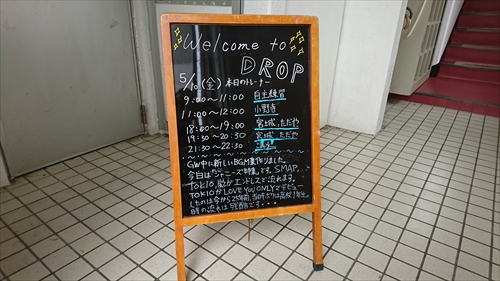 Welcome to
DROP
5/10(金) 本日のトレーナー
9:00〜11:00 自主練習
11:00〜12:00 小野寺
18:00〜19:00 宮城,ただや
19:30〜20:30 宮城,ただや
21:30〜22:30
GW中に新しいBGM集作りました。
今日はジャニーズ特集です。SMAP、
TOKIO、嵐がエンドレスで流れます。
TOKIOがLOVE YOU ONLYでデビュー
したのは今から25年前。当時ボクは高校1年生。
時の流れは残酷です・・・